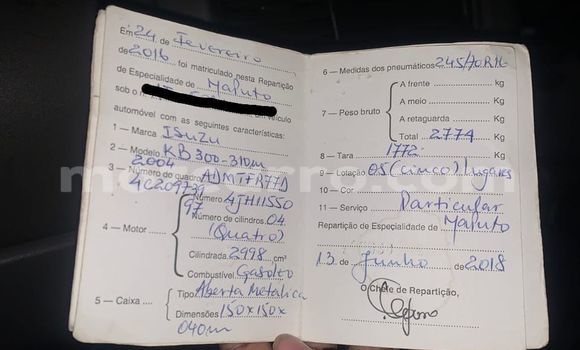 Em 24 de Fevereiro
de 2016 foi matriculado nesta Repartição
de Especialidade de Maputo
sob o n. um veículo
automóvel com as seguintes características:
1 — Marca ISUZU
2 — Modelo KB 300-310m
2004
3 — Número de quadro ADMTFR77D
4C209739
97
4 — Motor
Número 4JH1I550
Número de cilindros 04
(Quatro)
Cilindrada 2998 cm³
Combustível Gasoleo
5 — Caixa
Tipo Aberta Metalica
Dimensões 150x150x
040m
6 — Medidas dos pneumáticos 245/70R16
7 — Peso bruto
A frente Kg
A meio Kg
A retaguarda Kg
Total 2774 Kg
8 — Tara 1772 Kg
9 — Lotação 05 (cinco) lugares
10 — Cor
11 — Serviço Particular
Repartição de Especialidade de Maputo
13 de Junho de 2018
O Chefe de Repartição,